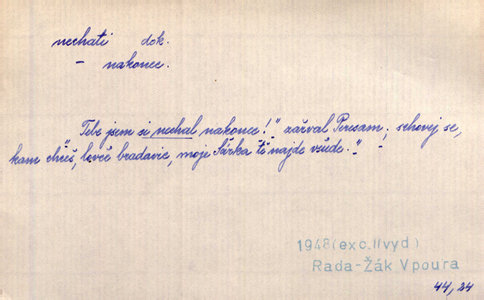 nechati dok.
– nakonec.
„Tebe jsem si nechal nakonec!" zařval Peresam; schovej se,
kam chceš, lovče bradavic, moje šárka tě najde všude."
1948 (exc. II vyd)
Rada-Žák Vpoura
44, 24